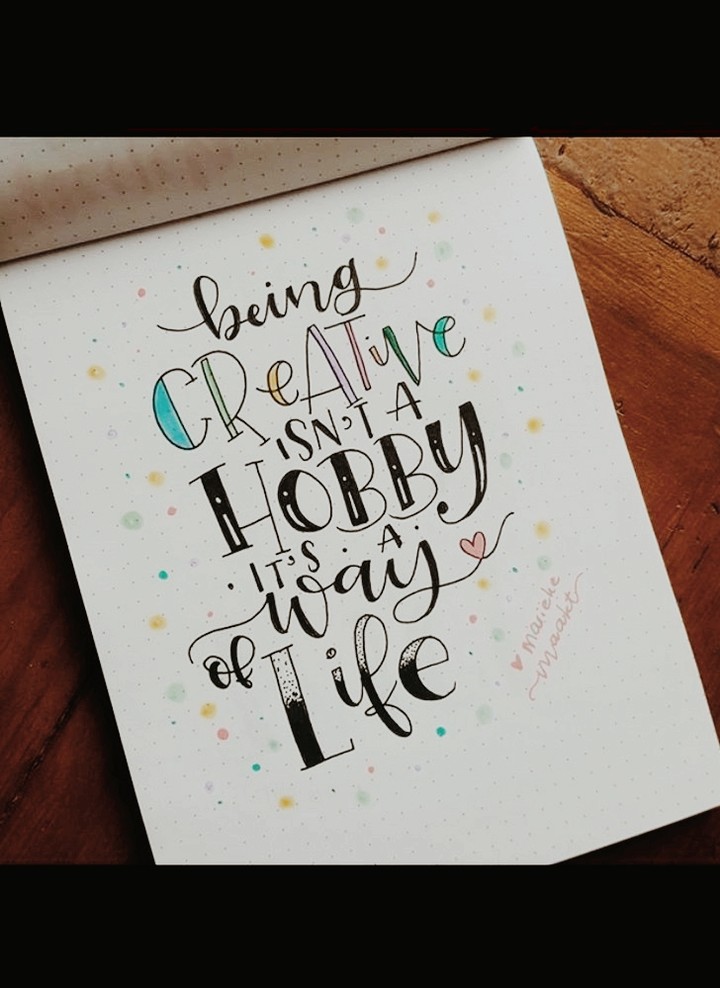 being
CReATive
ISN'T A
HOBBY
· IT'S · A ·
way
of Life
marieke
maakt